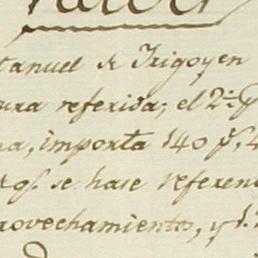 Manuel de Trigoyen
ura referida; el 2º
na, importa 140 p.s, 4
q.e se hase referen
provechamiento, y